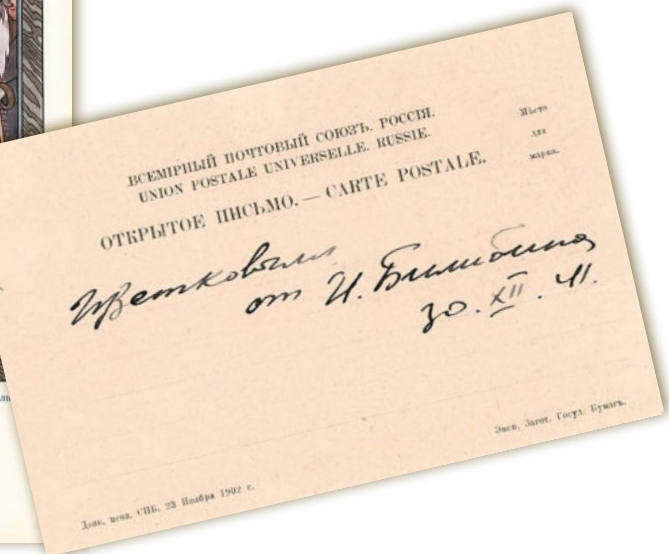 ВСЕМІРНЫЙ ПОЧТОВЫЙ СОЮЗЪ. РОССІЯ.
UNION POSTALE UNIVERSELLE. RUSSIE.
ОТКРЫТОЕ ПИСЬМО. — CARTE POSTALE.
Мѣсто
для
марки.
Цветковым
от И. Билибина
30. XII. 41.
Эксп. Загот. Госуд. Бумагъ.
Дозв. ценз. СПБ. 23 Ноября 1902 г.